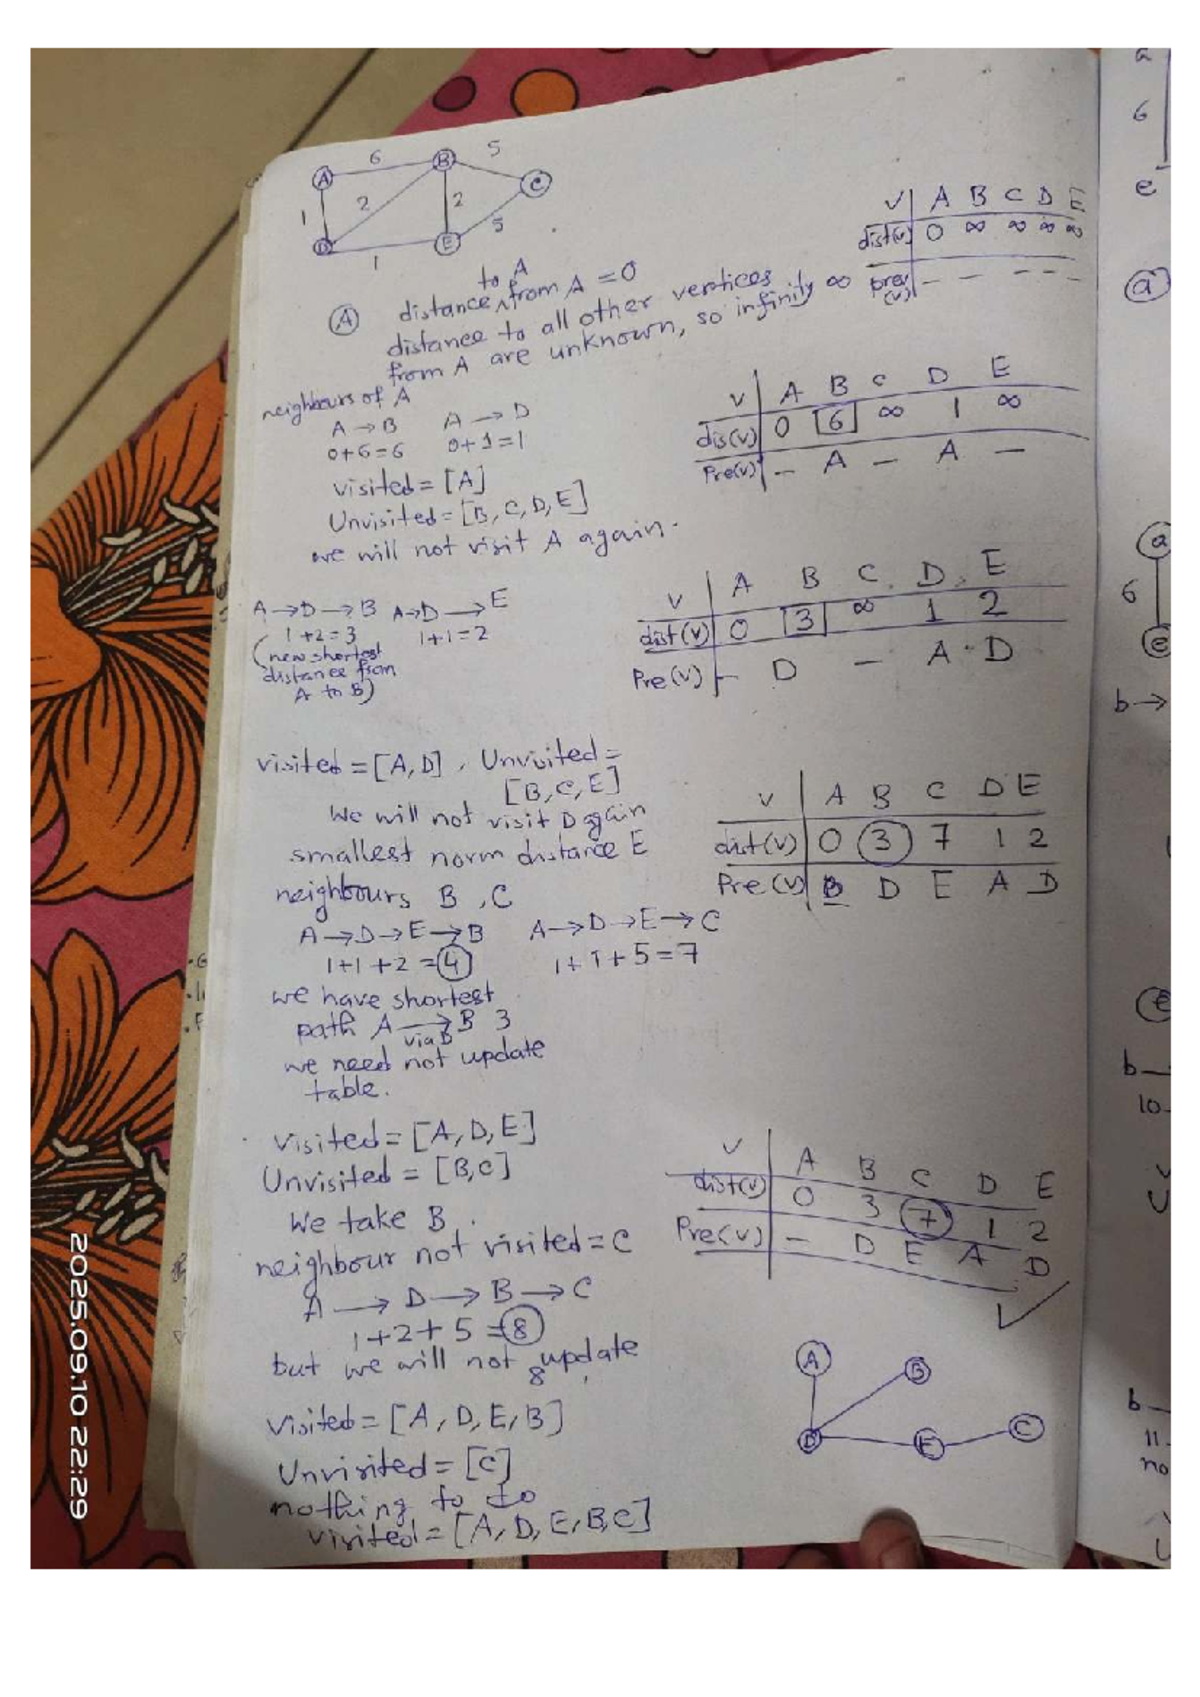 A 6 B 5 C
1 2 2 5
D 1 E
V A B C D E
dist(v) 0 ∞ ∞ ∞ ∞
prev(v) — — — — —
to A
(A) distance ^ from A = 0
distance to all other vertices
from A are unknown, so infinity ∞
neighbours of A
A → B A → D
0+6=6 0+1=1
visited = [A]
Unvisited = [B, C, D, E]
we will not visit A again.
V A B C D E
dis(v) 0 6 ∞ 1 ∞
Pre(v) — A — A —
A → D → B A → D → E
1+2=3 1+1=2
(new shortest
distance from
A to B)
V A B C D E
dist(v) 0 3 ∞ 1 2
Pre(v) — D — A D
visited = [A, D], Unvisited =
[B, C, E]
We will not visit D again
smallest norm distance E
neighbours B, C
A → D → E → B A → D → E → C
1+1+2 = 4 1+1+5=7
we have shortest
path A → B 3
via D
we need not update
table.
V A B C D E
dist(v) 0 3 7 1 2
Pre(v) D E A D
visited = [A, D, E]
Unvisited = [B, C]
We take B.
neighbour not visited = C
A → D → B → C
1+2+5 = 8
but we will not update
8
V A B C D E
dist(v) 0 3 7 1 2
Pre(v) — D E A D
visited = [A, D, E, B]
Unvisited = [C]
nothing to do
visited = [A, D, E, B, C]
A B
D E C
6
e
a
a
6
e
b →
b
10
b
11
no
2025.09.10 22:29